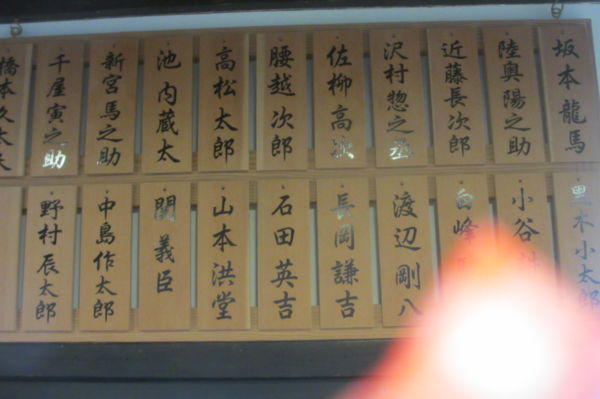 坂本龍馬
陸奥陽之助
近藤長次郎
沢村惣之丞
佐柳高次
腰越次郎
高松太郎
池内蔵太
新宮馬之助
千屋寅之助
橋本久太夫
黒木小太郎
小谷
白峰
渡辺剛八
長岡謙吉
石田英吉
山本洪堂
関義臣
中島作太郎
野村辰太郎